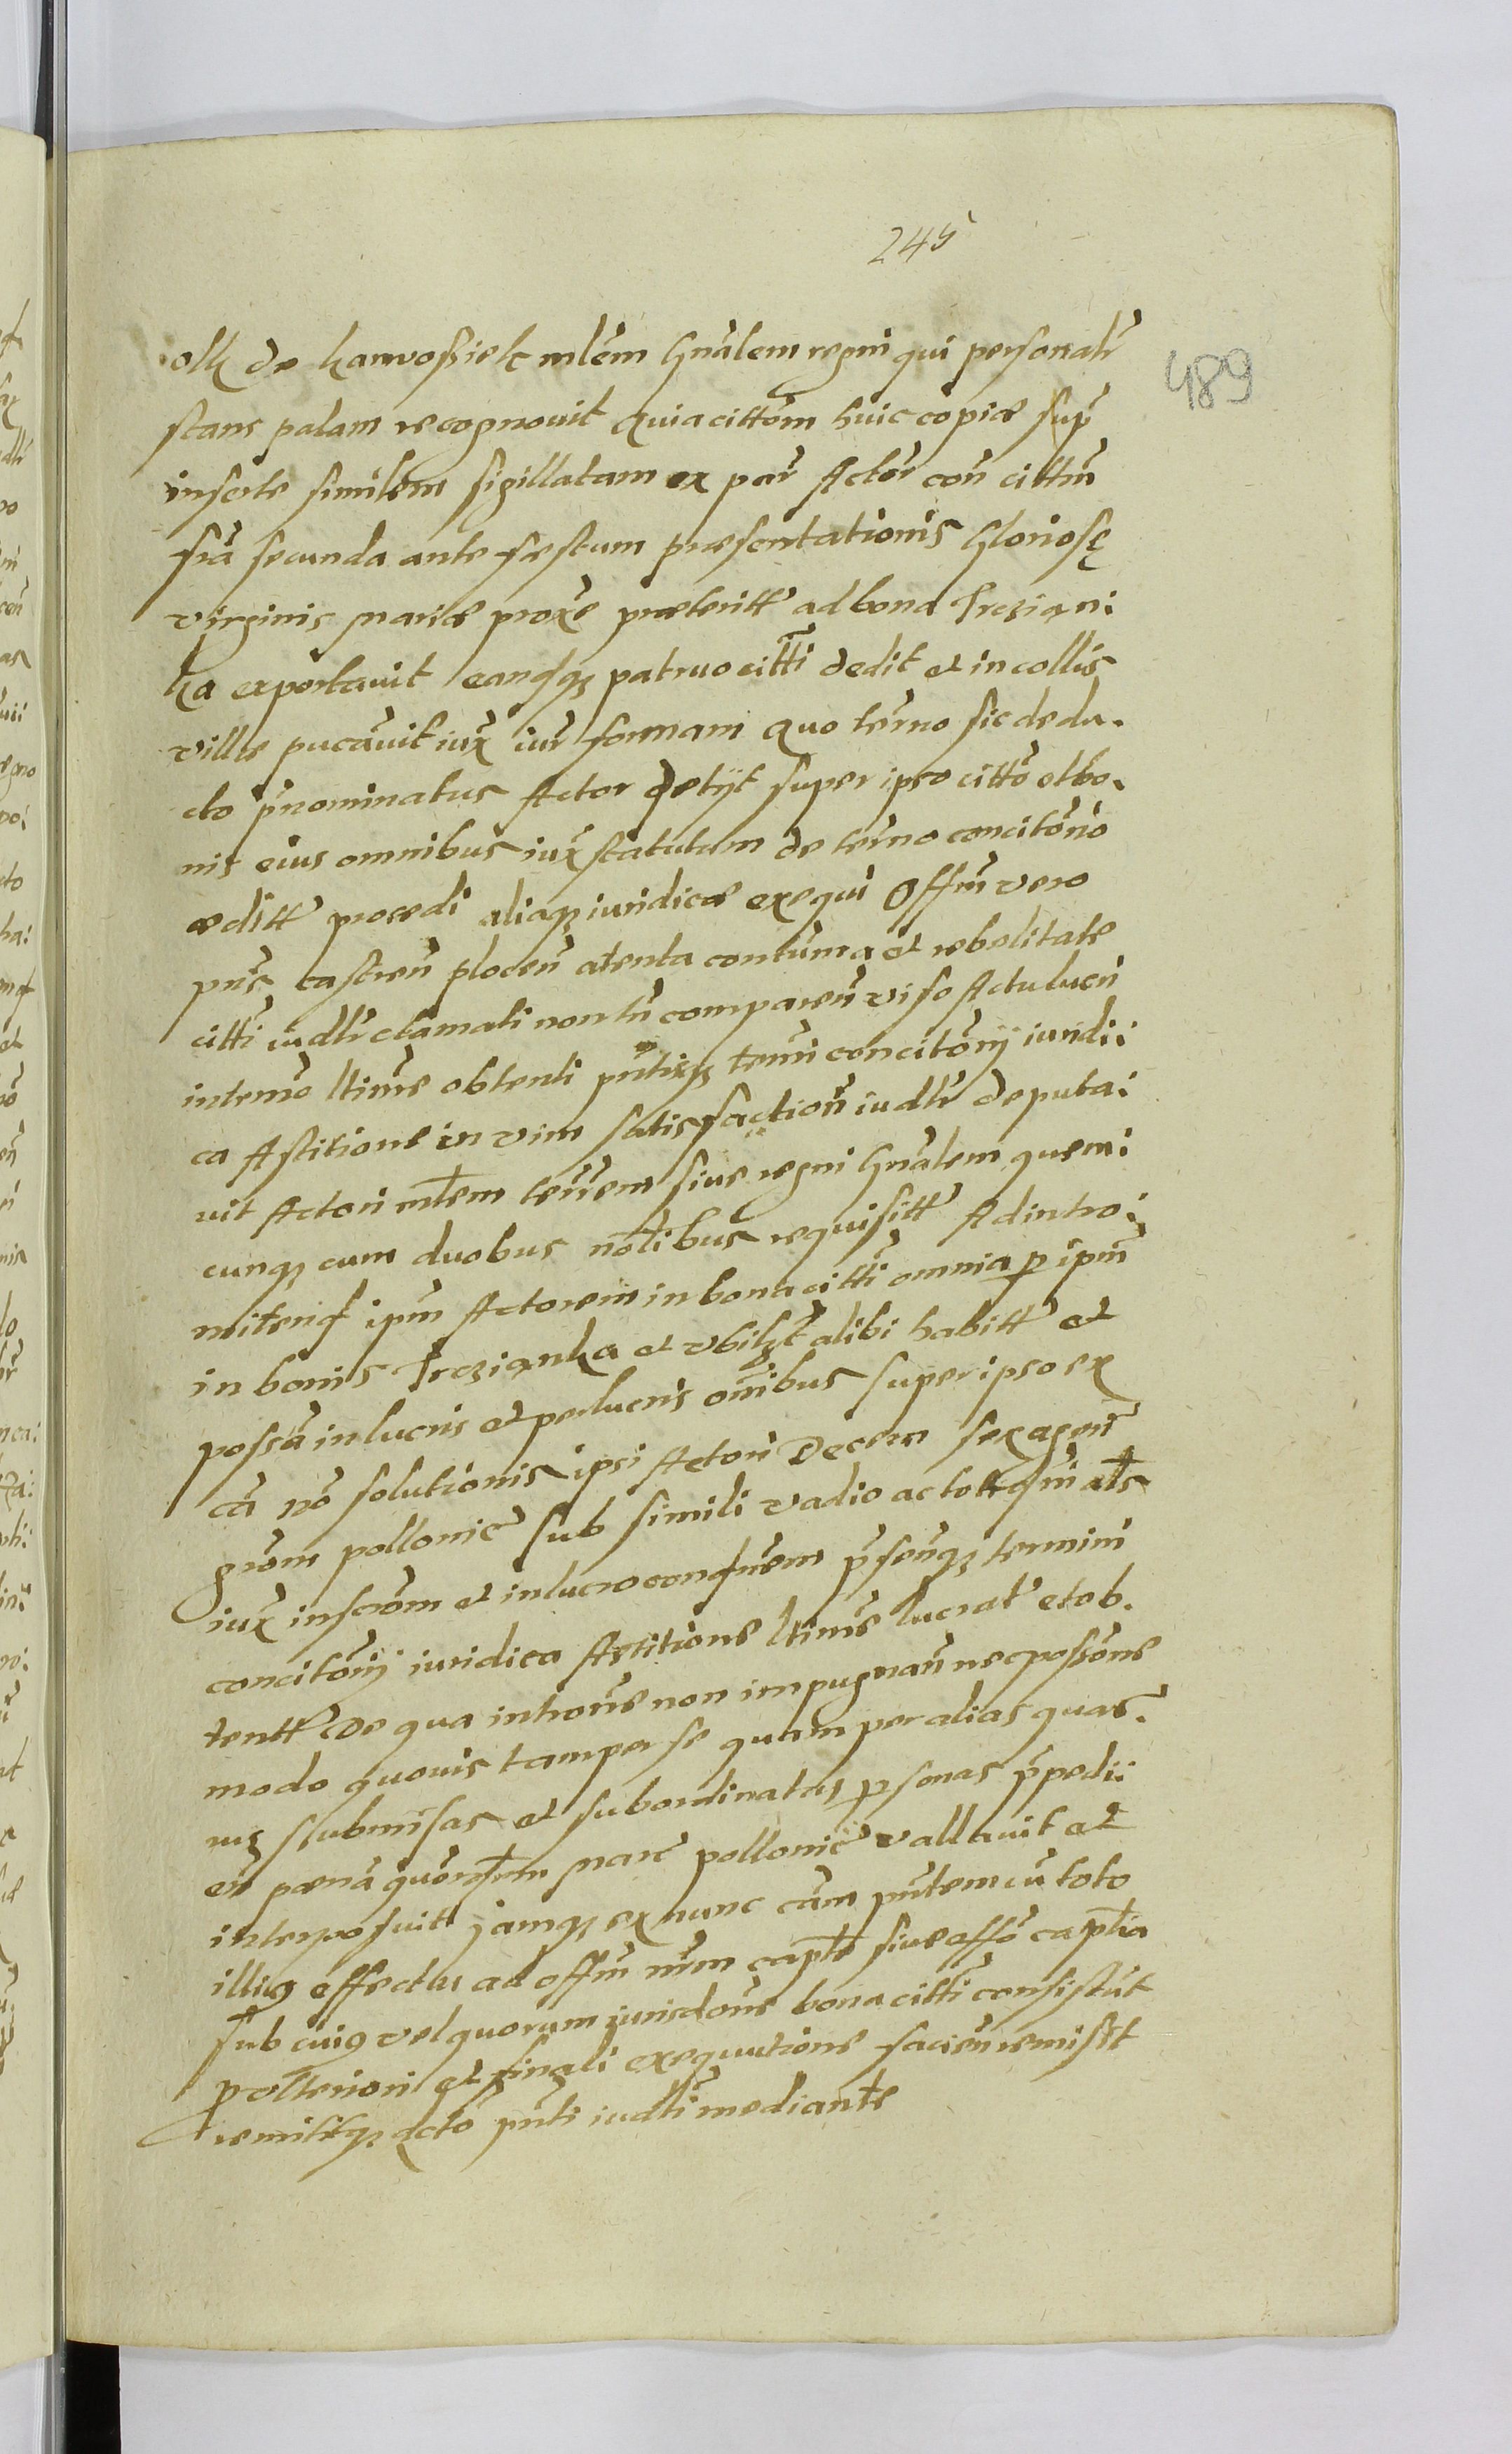 245
489
olk de karwosziek mlem Gnalem regni qui personalr
stans palam recognouit Quia cittom huic copiæ sup
inserte similem sigillatam ex par Actor con cittm
fria secunda ante festum præsentationis Gloriosę
virginis mariæ proxe præteritt ad bona Trezian:
ka exportauit eandqz patruo citti dedit et in collis
ville pucauit iux iur formam Quo terno sic dedu.
cto pnominatus Actor petijt super ipso citto et bo.
nis eius omnibus iux statutum de terno concitorio
æditt procedi aliaqz iuridicæ exequi Offm vero
pns castren plocen atenta contuma et rebelitate
citti iudlr clamati non tn comparen viso Actu lucri
in terno ltime obtenti pntisqz termi concitorij iuridi:
ca Astitione in vim satisfaction iudlr deputa:
uit Actori mlem terrem siue regni Gnalem quem:
cunqz cum duobus nolibus requisitt Ad intro:
mitend ipm Actorem in bona citti omnia p ipm
in bonis Trezianka et vbilzt alibi habitt et
possa in lucris et perlucris omibus super ipso ex
ca no solutionis ipsi Actori Decem sexagen
grom pollonic sub simili vadio ac tott dm alr
iux inscrom et in lucro condnem psenqz termini
concitorij iuridica Astitione ltime lucrat et ob.
tentt De qua introne non impugnan nec possone
modo quouis tam per se quam per alias quas.
uis submisas et subordinatas psonas ppedi:
en pœna quorstm marc pollonic vallauit et
interposuit jamqz ex nunc cam pntem cu toto
illius effectu ad offm nrm captle siue offo captlia
sub cuius vel quorum jurisdone bona citti consistut
p vlteriori et finali exequutione facien remisit
remittqz acto pnti iudlri mediante